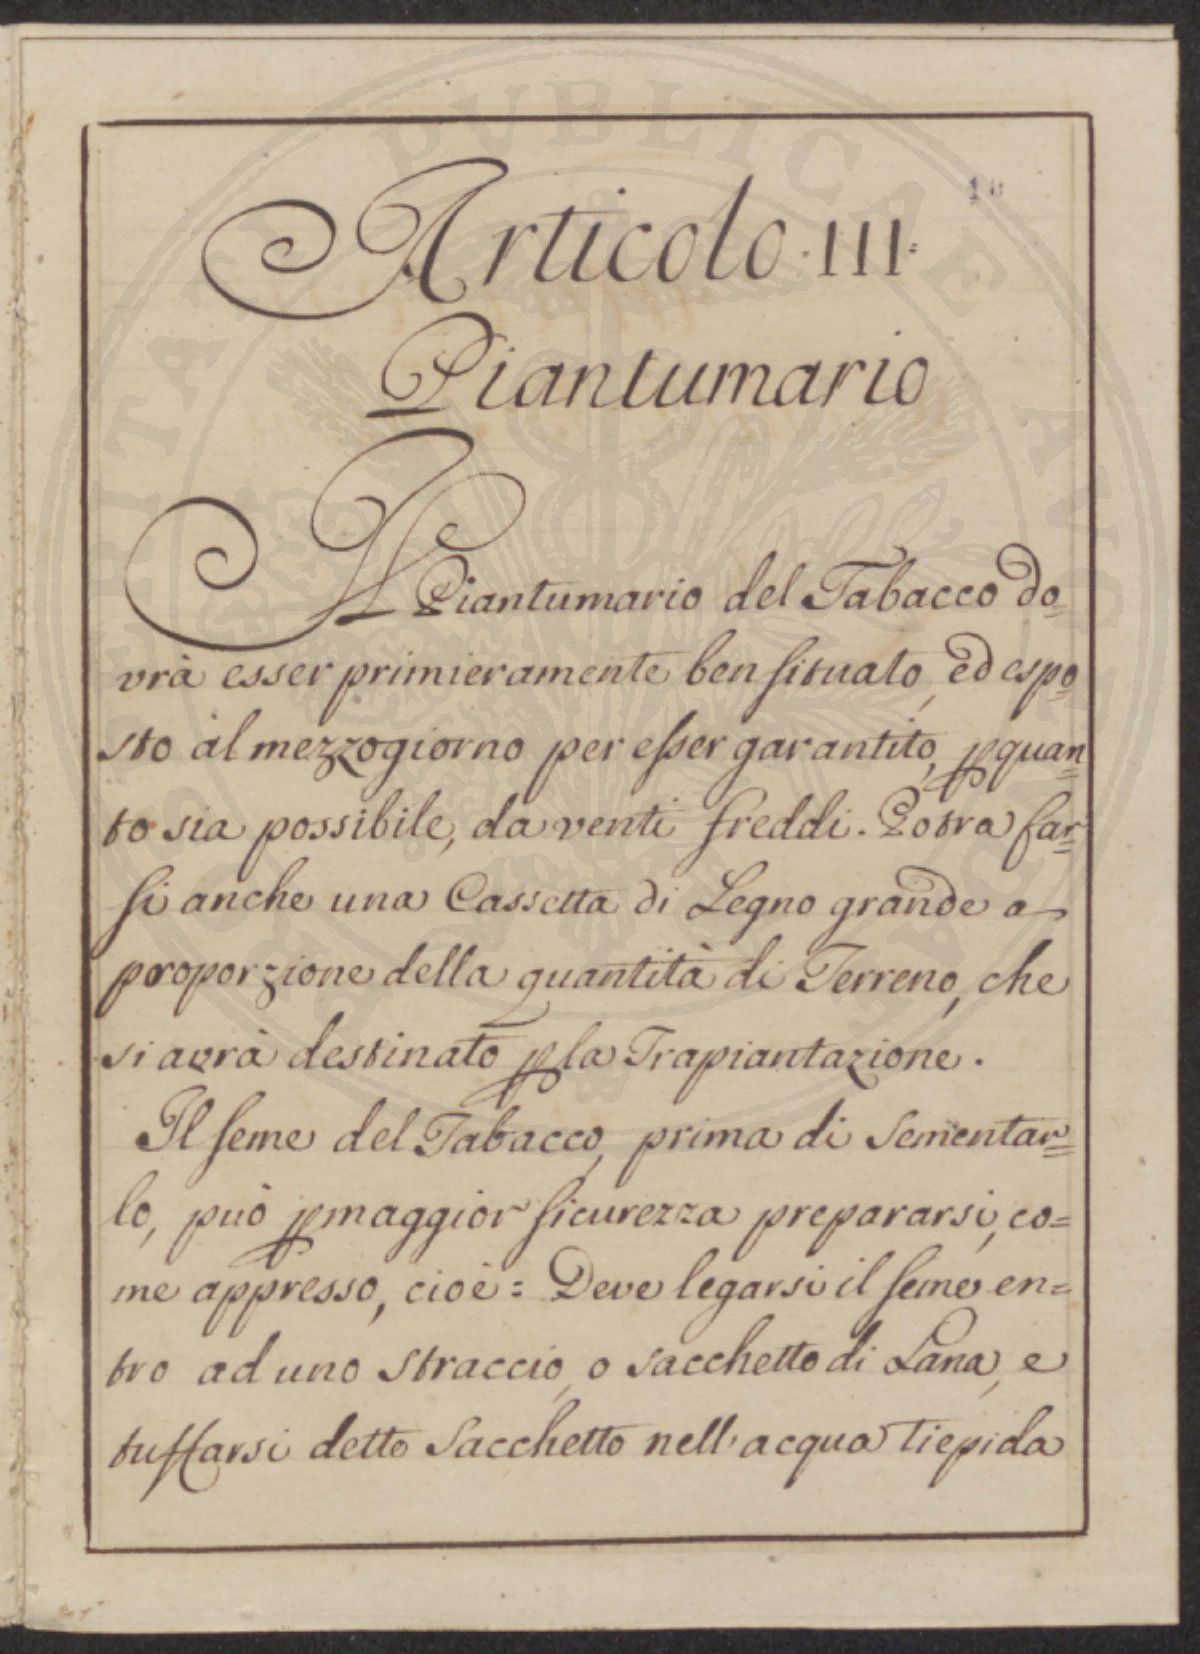 10
Articolo III.
Piantumario
Il Piantumario del Tabacco do=
vrà esser primieramente ben situato, ed espo=
sto al mezzogiorno per esser garantito, p quan=
to sia possibile, da venti freddi. Potra far=
si anche una Cassetta di Legno grande a
proporzione della quantità di Terreno, che
si avrà destinato p la Trapiantazione.
Il seme del Tabacco, prima di sementar=
lo, può p maggior sicurezza prepararsi, co=
me appresso, cioè: Deve legarsi il seme en=
tro ad uno straccio, o sacchetto di Lana, e
tuffarsi detto Sacchetto nell'acqua tiepida